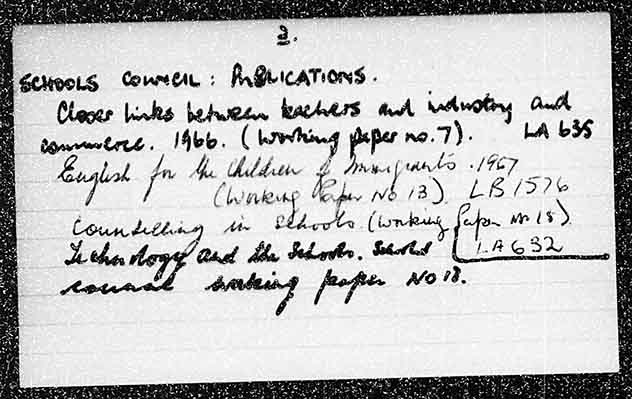 2.
SCHOOLS COUNCIL: PUBLICATIONS.
Closer links between teachers and industry and
commerce. 1966. (Working paper no. 7). LA 635
English for the Children of Immigrants. 1967
(Working Paper No 13) LB 1576
Counselling in Schools (Working Paper No 15)
LA 632
Technology and the Schools. Schools
council working paper No 18.